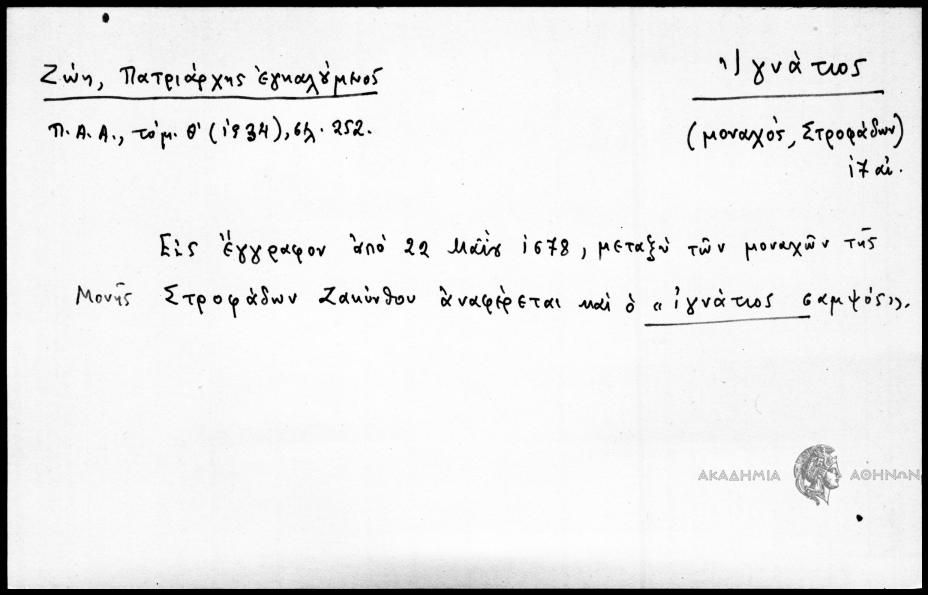 Ζώη, Πατριάρχης ἐγκαλούμενος
Π.Α.Α., τόμ. Θ' (1934), σλ. 252.
Ἰγνάτιος
(μοναχός, Στροφάδων)
17 αἰ.
Εἰς ἔγγραφον ἀπό 22 Μαΐου 1678, μεταξύ τῶν μοναχῶν τῆς
Μονῆς Στροφάδων Ζακύνθου ἀναφέρεται καί ὁ «ἰγνάτιος σαμψός».
ΑΚΑΔΗΜΙΑ ΑΘΗΝΩΝ